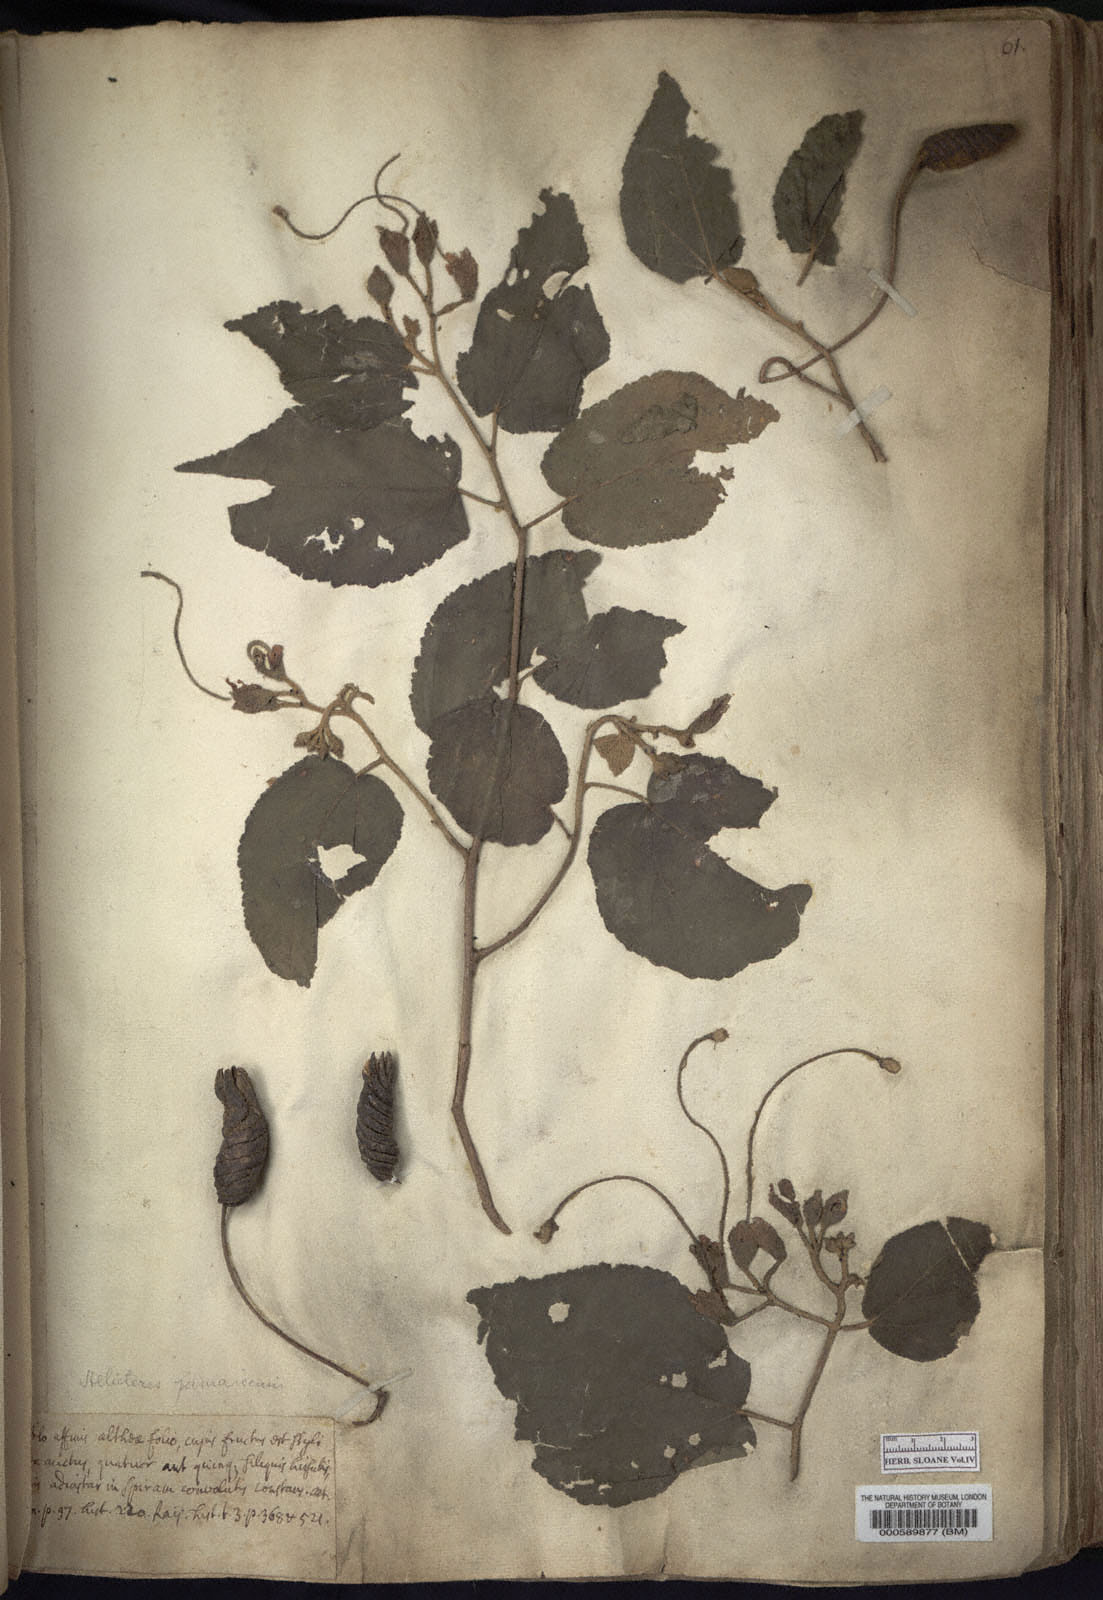 61.
Helicteres jamaicensis
affinis altheæ folio, cujus fructus est styli
auctus, quatuor aut quinq; siliquis hirsutis,
adinstar in spiram convolutis constans. cat.
p. 97. hist. 220. Raij. hist. t. 3. p. 368 & 521.
HERB. SLOANE Vol.IV
THE NATURAL HISTORY MUSEUM, LONDON
DEPARTMENT OF BOTANY
000589877 (BM)